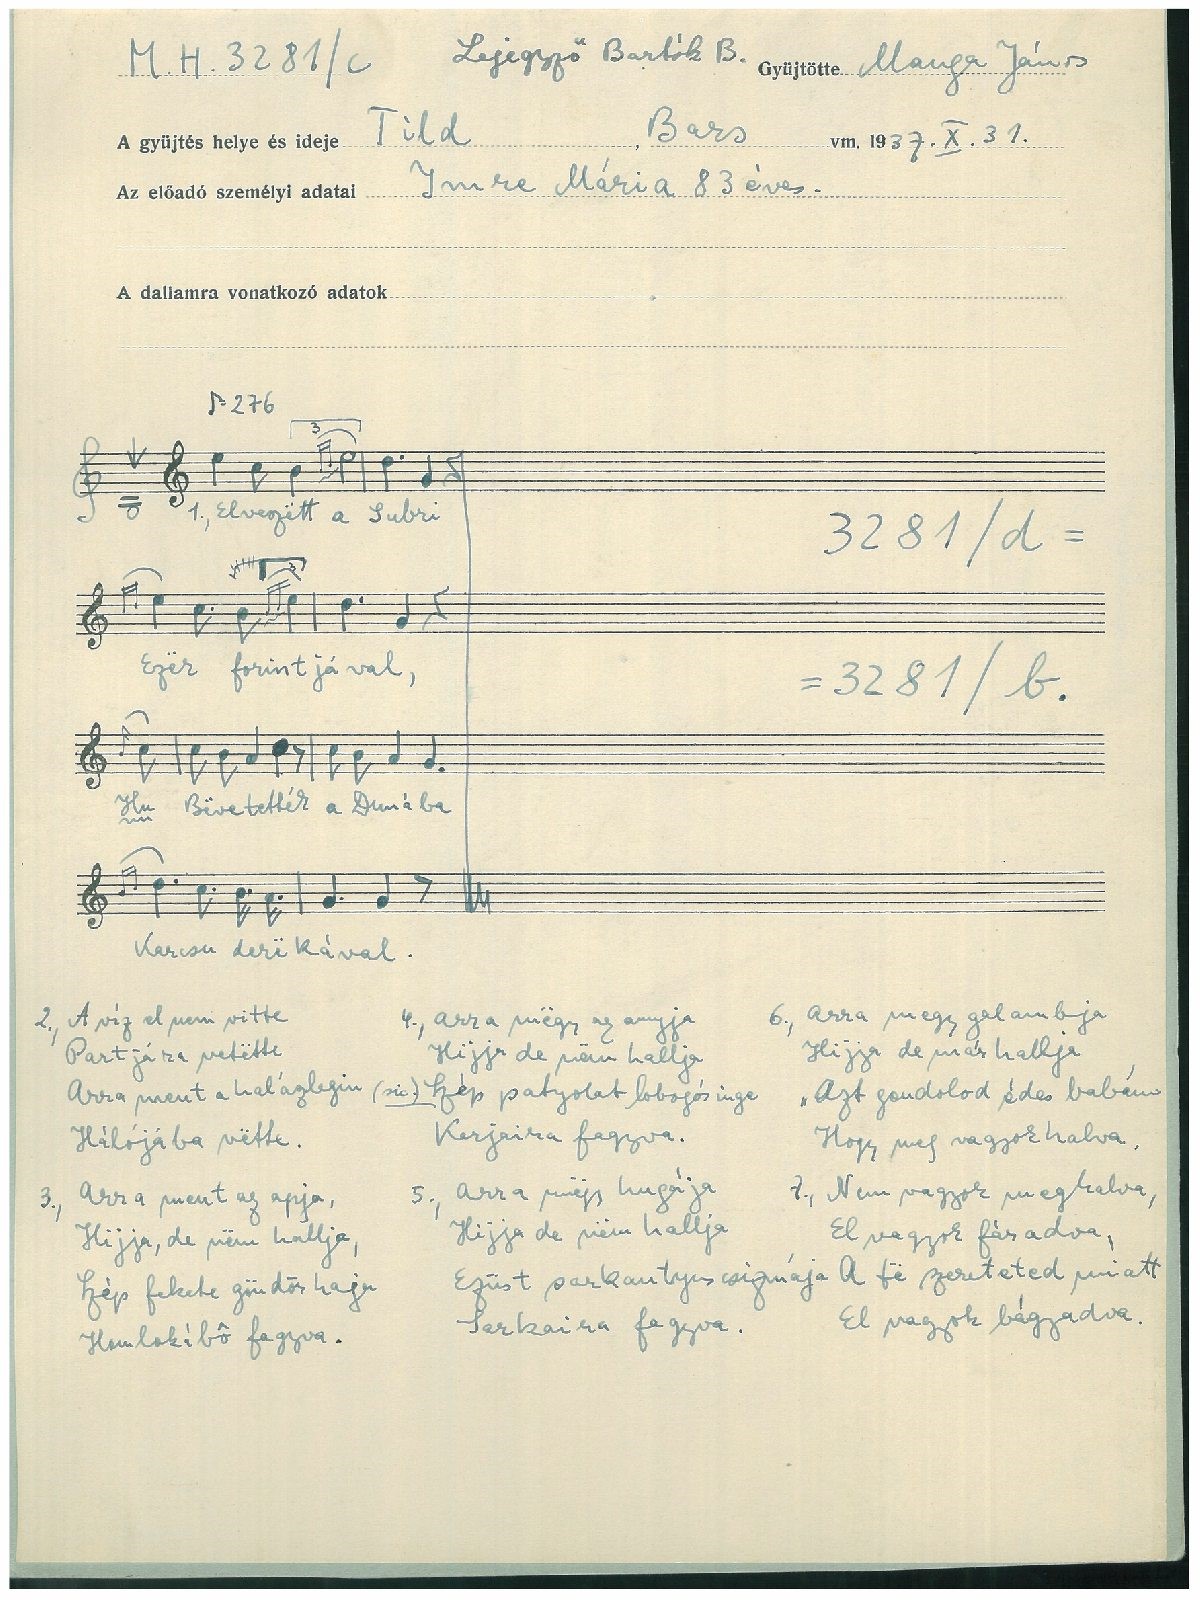 M.H. 3281/c Lejegyző Bartók B. Gyüjtötte Manga János
A gyüjtés helye és ideje Tild, Bars vm. 1937. X. 31.
Az előadó személyi adatai Imre Mária 83 éves.
A dallamra vonatkozó adatok
♪=276
3
1., Elveszëtt a Subri
3281/d =
Ezër forintjával,
= 3281/b.
Hu Bëvetették a Dunába
Karcsu derëkával.
2., A víz el nem vitte
Partjára vetëtte
Arra ment a halázlegin (sic!)
Hálójába vëtte.
3., Arra ment az apja,
Hijja, de nëm hallja,
Szép fekete göndör haja
Homlokábô fagyva.
4., Arra mëgy az anyja
Hijja de nëm hallja
Szép patyolat lobogósinge
Karjaira fagyva.
5., Arra mëgy hugája
Hijja de nëm hallja
Ezüst sarkantyus csizmája
Sarkaira fagyva.
6., Arra megy galambja
Hijja de már hallja
„Azt gondolod édes babám
Hogy meg vagyok halva.
7., Nem vagyok meghalva,
El vagyok fáradva,
A të szereteted miatt
El vagyok bágyadva.